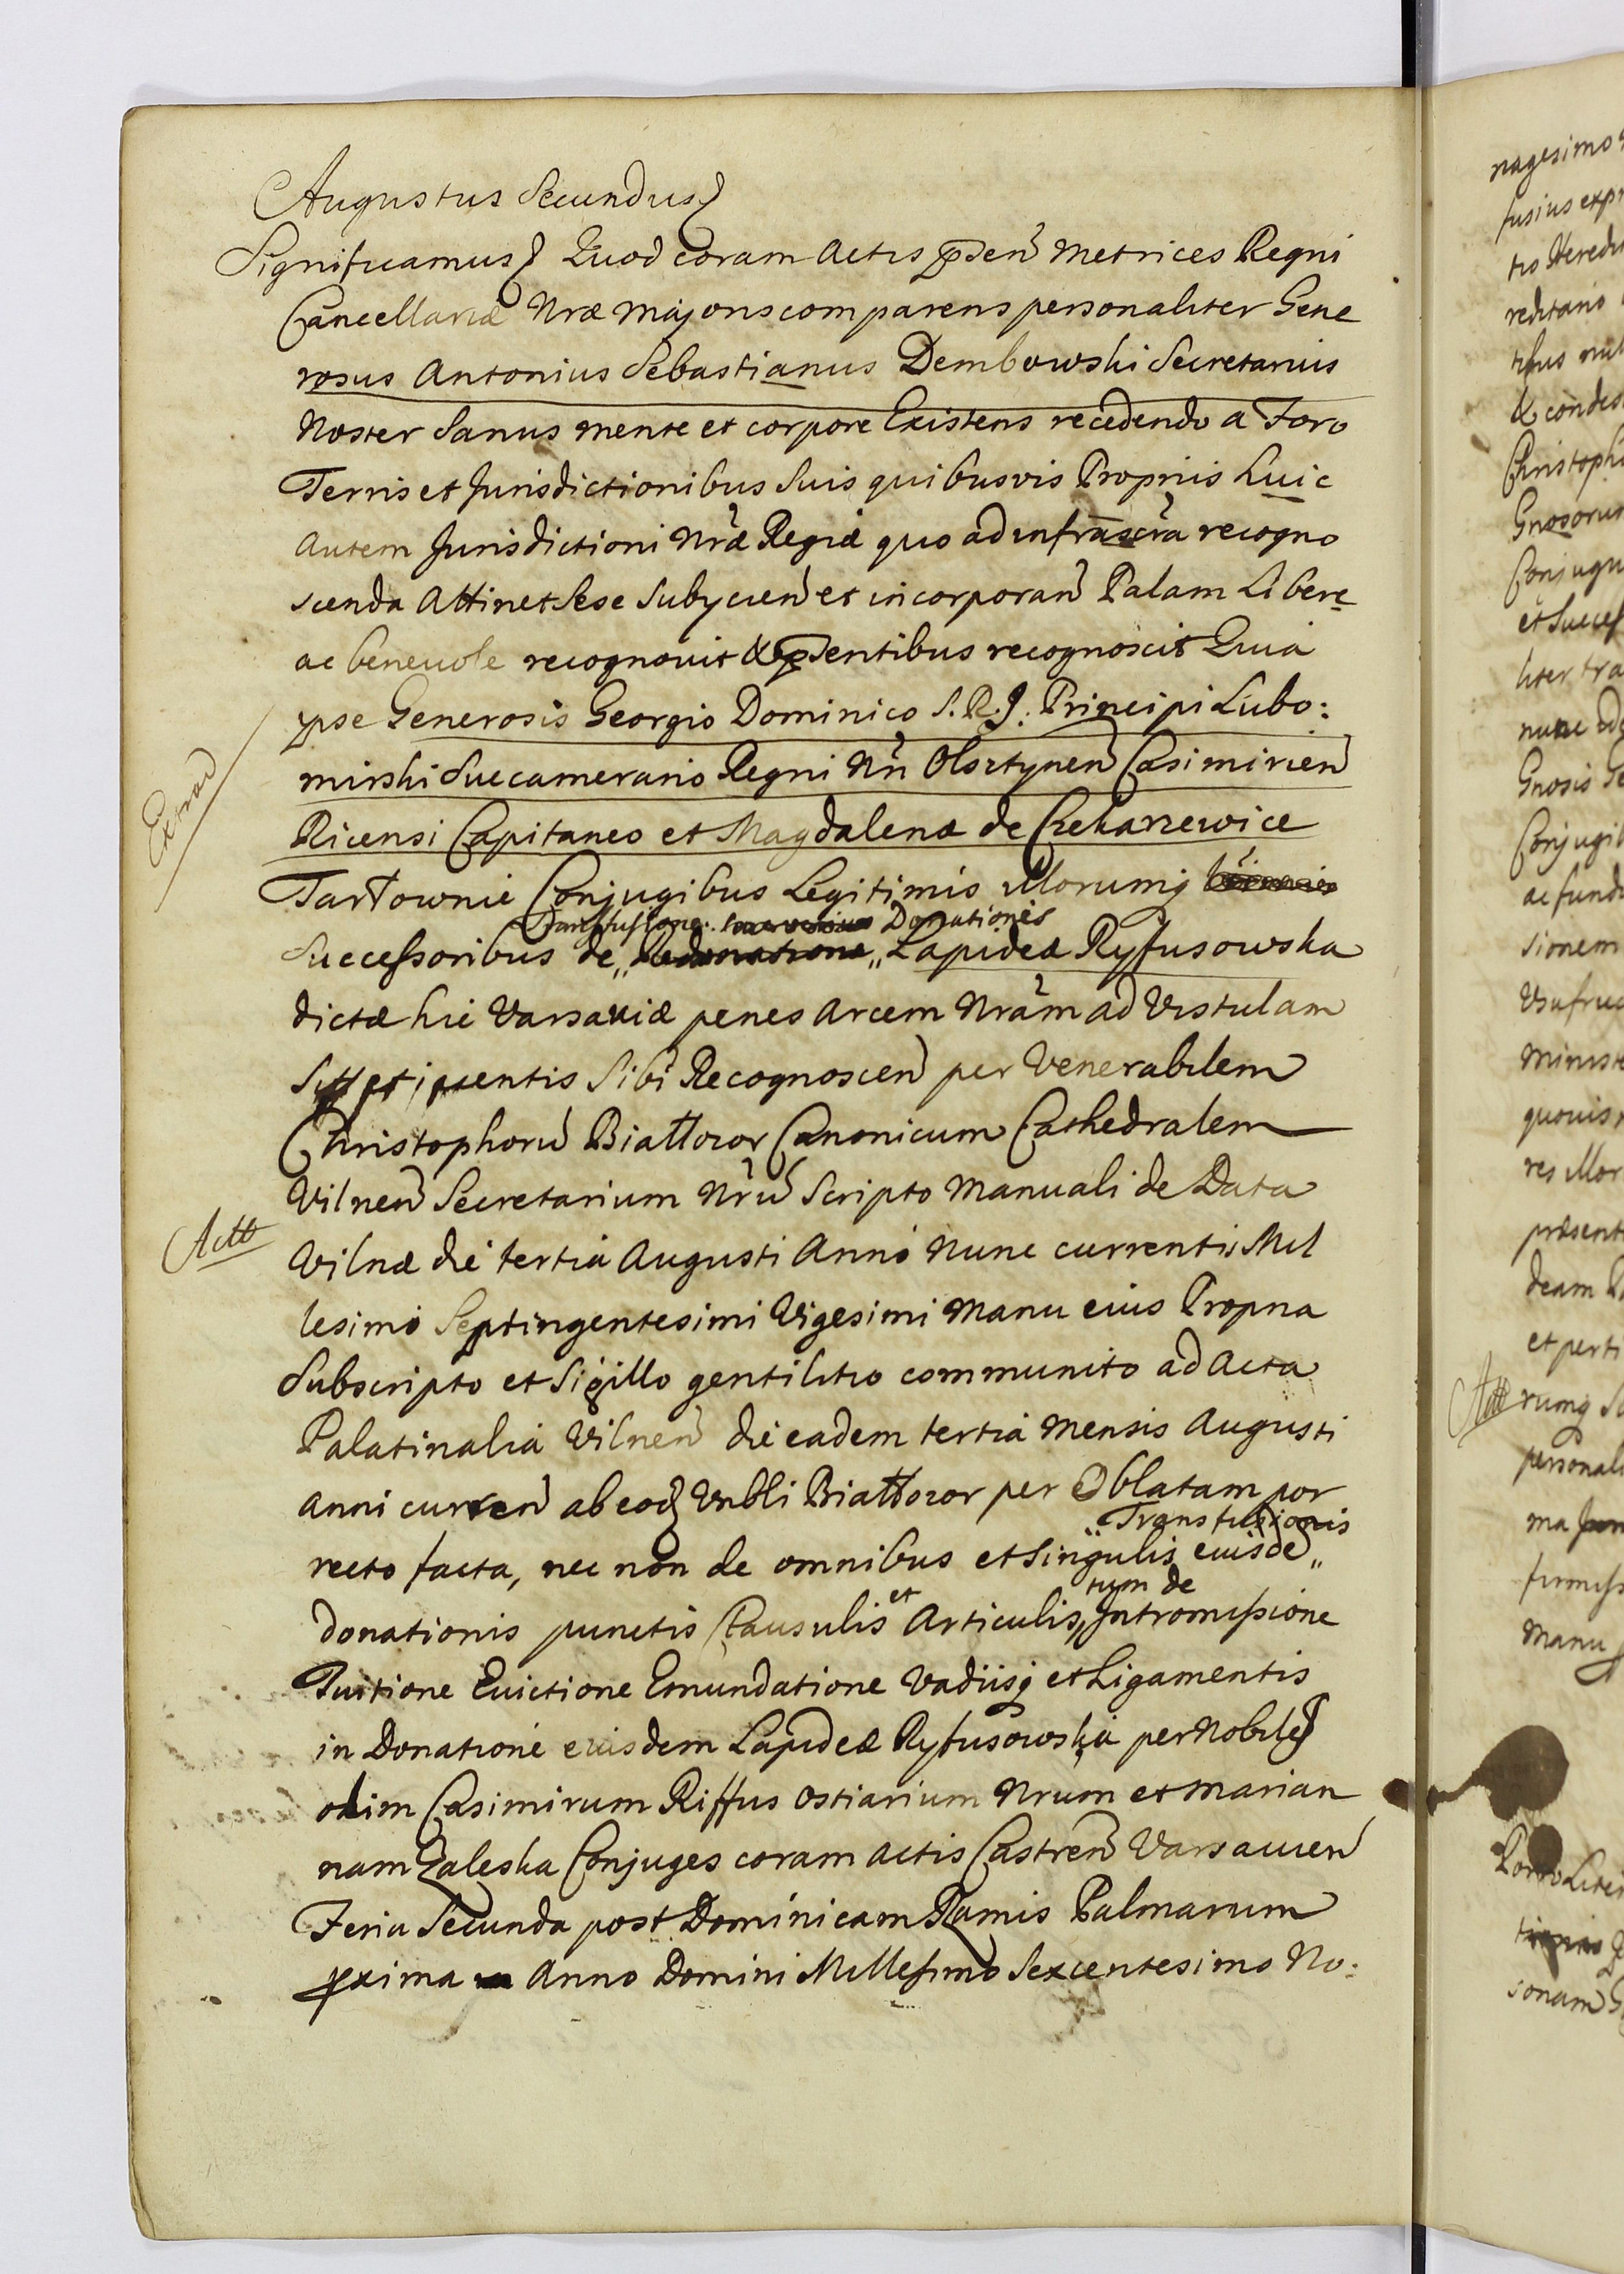 Augustus Secundus
Significamus Quod coram Actis pñsen Metrices Regni
Cancellariæ Nræ Majoris comparens personaliter Gene
rosus Antonius Sebastianus Dembowski Secretarius
Noster Sanus mente et corpore Existens recedendo a Foro
Terris et Jurisdictionibus Suis quibusvis Propriis huic
autem Jurisdictioni Nræ Regiæ quo ad infrascra recogno
scenda Attinet Sese Subycien et incorporan Palam Libere
ac benevole recognovit & pñsentibus recognoscit Quia
ipse Generosis Georgio Dominico S. R. J. Principi Lubo:
mirski Succamerario Regni Nri Olsztynen Casimirien
Ricensi Capitaneo et Magdalenæ de
Extrad
Tarłownie Conjugibus Legitimis illorumq
Transfusione Donationis
Successoribus de Lapideæ Ryfusowska
dictæ hic Varsaviæ penes Arcem Nram ad Vistulam
Sibi Recognoscen per Venerabilem
Christophoru Białłozor Canonicum Cathedralem
Vilnen Secretarium Nru Scripto Manuali de Data
Actt
Vilnæ die tertia Augusti Anni Nunc currentis Mil
lesimi Septingentesimi Vigesimi Manu eius Propria
Subscripto et Sigillo gentilitio communito ad Acta
Palatinalia Vilnen die eadem tertia Mensis Augusti
anni curren ab eod Vnbli Białłozor per Oblatam por
Transfusionis
recto facta, nec non de omnibus et Singulis eiusde
et tum de
donationis punctis Clausulis Articulis Intromissione
Tuitione Evictione Emundatione Vadiisq et Ligamentis
in Donatione eiusdem Lapideæ Ryfusowska per Nobiles
olim Casimirum Riffus Ostiarium Nrum et Marian
nam Zaleska Conjuges coram Actis Castren Varsavien
Feria Secunda post Dominicam Ramis Palmarum
pxima Anno Domini Millesimo Sexcentesimo No:
nagesimo
fusius expr
tis Heredi
reditario
tibus nul
& condes
Christoph
Gnosorum
Conjugu
et Succes
liter tra
nunc
Gnosis Ge
Conjugib
ac fund
sionem
Vsufruc
Ministe
quovis
res illor
præsent
deam R
et perti
Actt
rumq Su
personali
ma
firmiss
Manu
Porro Liter
sonam G